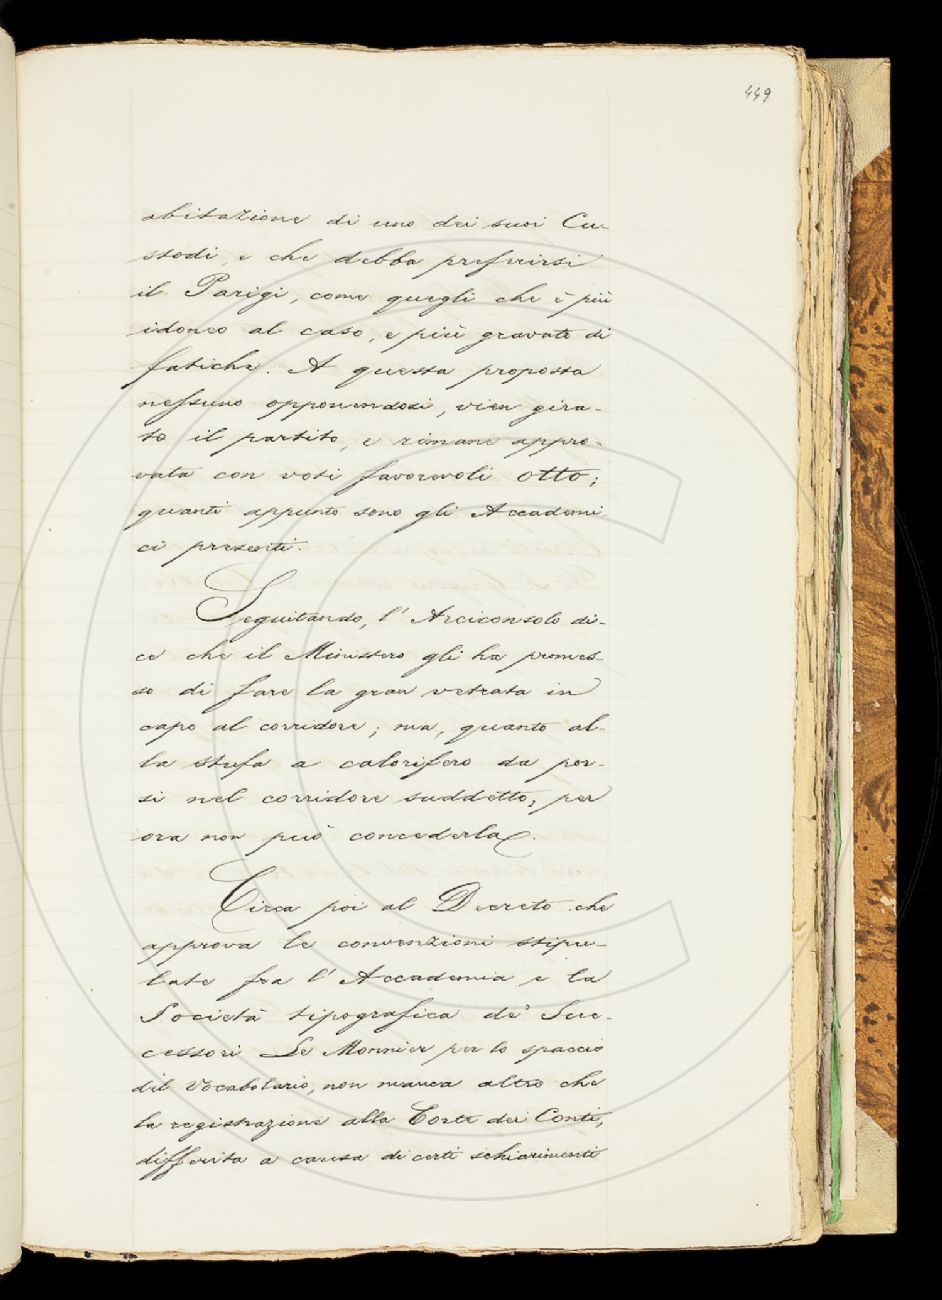 449
abitazione di uno dei suoi Cu-
stodi, e che debba preferirsi
il Parigi, come quegli che è più
idoneo al caso, e più gravato di
fatiche. A questa proposta
nessuno opponendosi, vien gira-
to il partito, e rimane appro-
vata con voti favorevoli otto;
quanti appunto sono gli Accademi-
ci presenti.
Seguitando, l'Arciconsolo di-
ce che il Ministero gli ha promes-
so di fare la gran vetrata in
capo al corridore; ma, quanto al-
la stufa a calorifero da por-
si nel corridore suddetto, per
ora non può concederla.
Circa poi al Decreto che
approva le convenzioni stipu-
late fra l'Accademia e la
Società tipografica de' Suc-
cessori Le Monnier per lo spaccio
del Vocabolario, non manca altro che
la registrazione alla Corte dei Conti,
differita a causa di certi schiarimenti